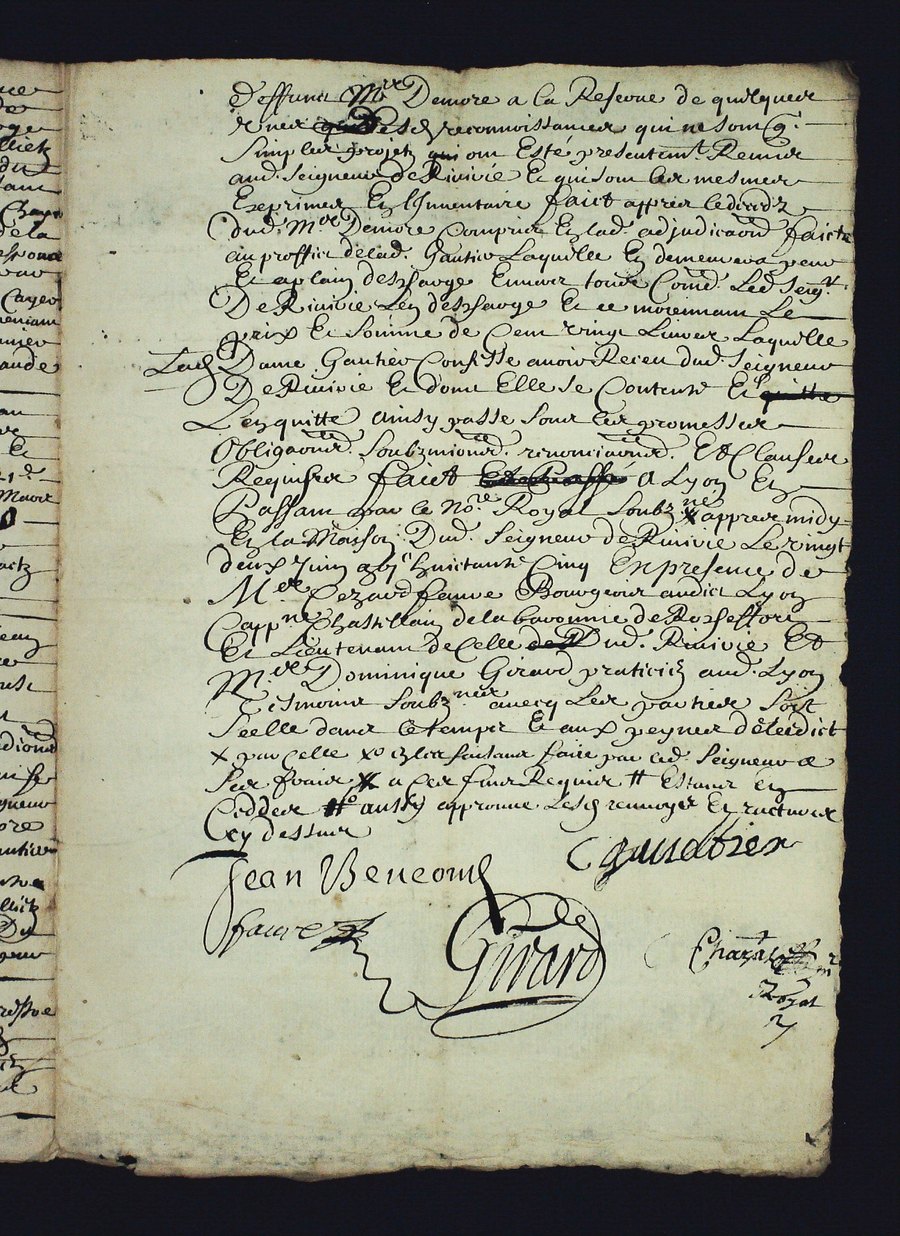 deffunct Mre Demore a la Reserue de quelques
unes desd reconnoissances qui ne sont q.
Simples projetz qui ont Esté presentemt. Remis
aud. Seigneur De Riuirie Et qui sont les mesmes
Exprimes En l'Inuentaire faict appres le decedz
dud. Mre Demore Compris En lad. adjudicaon faicte
au proffict de lad. Gautier Laquelle En demeurera
Et a plain deschargé Enuers tous Comme Led. Seigr.
De Riuirie L'en descharge Et ce moiennant Le
prix Et Somme de Cent vingt Liures Laquelle
Lad. Dame Gautier Confesse auoir Receu dud. Seigneur
De Riuirie Et dont Elle se Contente Et quitte
L'en quitte Ainsy passé Sous les promesses
Obligaons. Soubzmions. renonciaons. Et Clauses
Requises faict Et Passé A Lyon En
par le Nore. Royal Soubzne x appres midy
En la Maison Dud. Seigneur de Riuirie Le vingt
deux Juin huictante Cinq En presence de
Mre Cezard faure Bourgeois audict Lyon
Cappne Chastellain de la baronnie de Rossefort
Et Lieutenant de Celle Dud. Riuirie Et
Mre Dominique Girard praticien aud. Lyon
Tesmoins Soubznes auecq Les parties Soit
Seelle dans le temps Et aux peynes de l'edict
x par celle faisant faire par led. Seigneur &
Ses frais x a Ces fins Requis # Estant En
# aussy approuue Lesd renuoys Et ratures
Cy dessus
Cgautier
Jean Beneond
faure
Girard
Royal